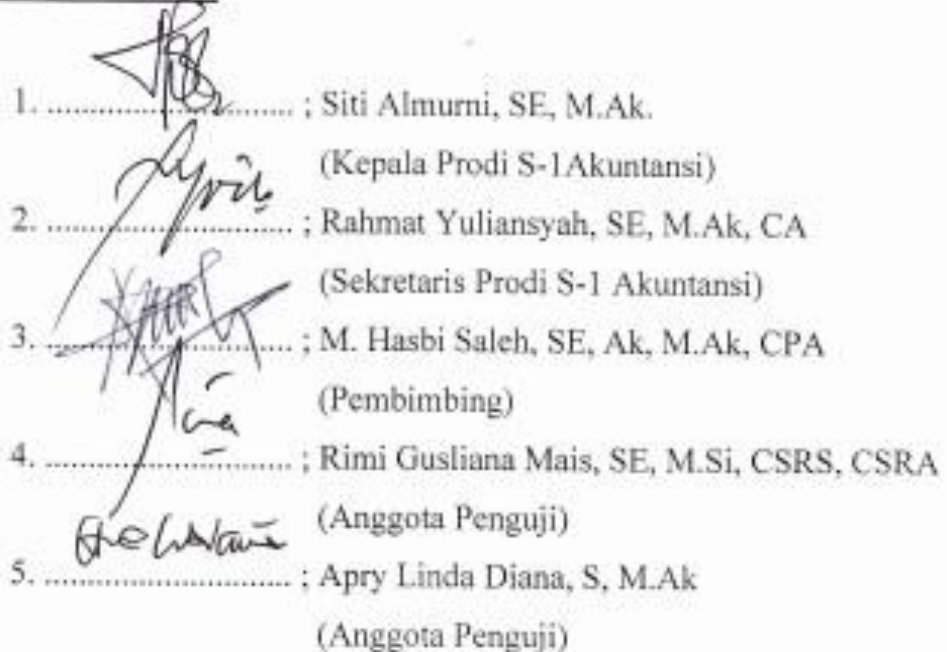 1. ........................... ; Siti Almurni, SE, M.Ak.
(Kepala Prodi S-1Akuntansi)
2. ........................... ; Rahmat Yuliansyah, SE, M.Ak, CA
(Sekretaris Prodi S-1 Akuntansi)
3. ........................... ; M. Hasbi Saleh, SE, Ak, M.Ak, CPA
(Pembimbing)
4. ........................... ; Rimi Gusliana Mais, SE, M.Si, CSRS, CSRA
(Anggota Penguji)
5. ........................... ; Apry Linda Diana, S, M.Ak
(Anggota Penguji)